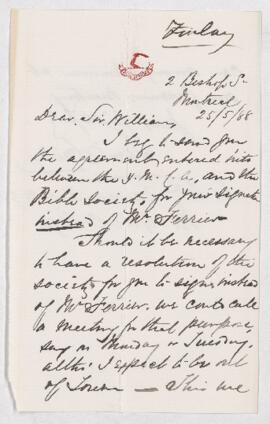 Finlay
2 Bishop St
Montreal
25/5/88
Dear Sir William,
I beg to send you
the agreement entered into
between the Y.M.C.A. and the
Bible Society for your signature
instead of Mr Ferrier.
Should it be necessary
to have a resolution of the
society for you to sign instead
of Mr Ferrier, we could call
a meeting for that purpose,
say on Monday or Tuesday,
altho' I expect to be out
of Town — This we